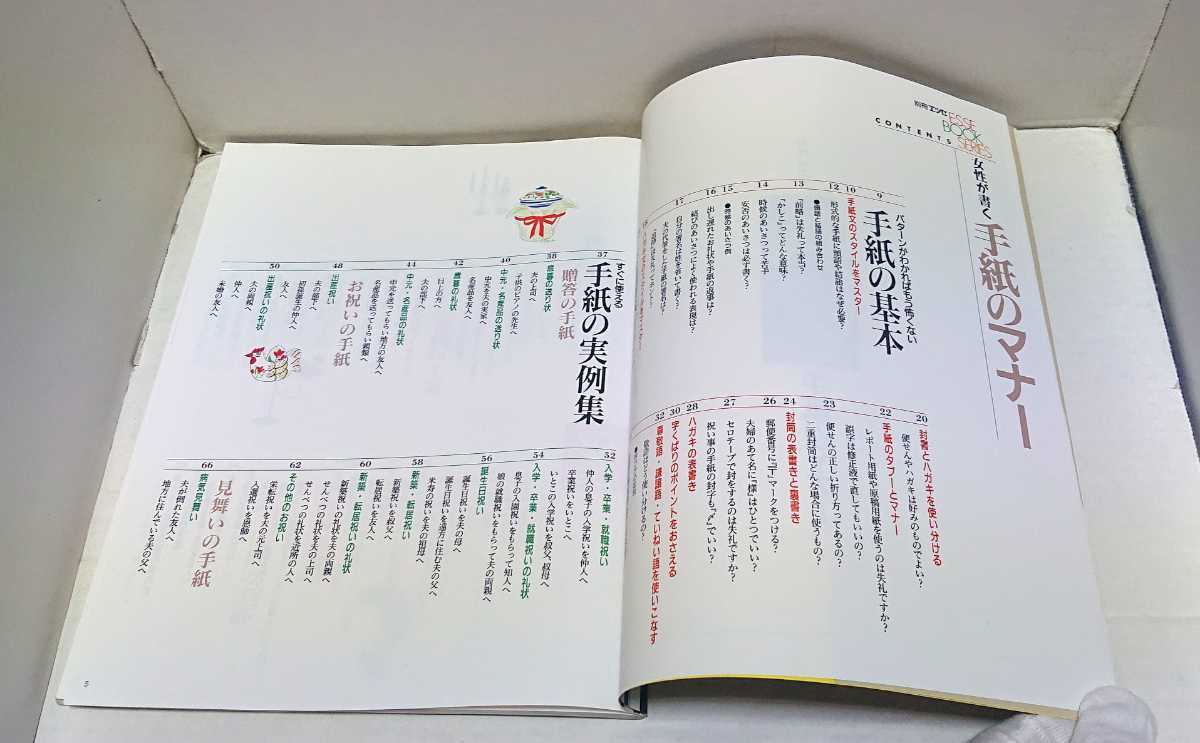 別冊エッセ
ESSE
BOOK
SERIES
CONTENTS
女性が書く
手紙のマナー
パターンがわかればもう怖くない
手紙の基本
9
10
手紙文のスタイルをマスター
12
形式的な手紙に頭語や結語はなぜ必要?
●頭語と結語の組み合わせ
13
「前略」は失礼って本当?
「かしこ」ってどんな意味?
14
時候のあいさつって苦手
安否のあいさつは必ず書く?
15
●時候のあいさつ例
16
出し遅れたお礼状や手紙の返事は?
結びのあいさつによく使われる表現は?
17
自分の署名は姓を書いて書く?
夫の代筆をした手紙の署名は?
20
封書とハガキを使い分ける
便せんやハガキは好みのものでよい?
22
手紙のタブーとマナー
レポート用紙や原稿用紙を使うのは失礼ですか?
誤字は修正液で直してもいいの?
23
便せんの正しい折り方ってあるの?
二重封筒はどんな場合に使うもの?
24
封筒の表書きと裏書き
26
郵便番号に「〒」マークをつける?
夫婦のあて名に「様」はひとつでいい?
27
セロテープで封をするのは失礼ですか?
祝い事の手紙の封字も「〆」でいい?
28
ハガキの表書き
30
字くばりのポイントをおさえる
32
尊敬語・謙譲語・ていねい語を使いこなす
敬語はどう使い分けるの?
37
すぐに使える
手紙の実例集
贈答の手紙
38
歳暮の送り状
夫の上司へ
子供のピアノの先生へ
40
中元・名産品の送り状
中元を夫の実家へ
名産品を友人へ
42
歳暮の礼状
目上の方へ
夫の部下へ
44
中元・名産品の礼状
中元を送ってもらい地方の友人へ
名産品を送ってもらい親類へ
お祝いの手紙
48
出産祝い
夫の部下へ
初孫誕生の仲人へ
友人へ
50
出産祝いの礼状
夫の両親へ
仲人へ
未婚の友人へ
52
入学・卒業・就職祝い
仲人の息子の入学祝いを仲人へ
卒業祝いをいとこへ
いとこの入学祝いを叔父、叔母へ
54
入学・卒業・就職祝いの礼状
息子の入園祝いをもらって知人へ
娘の就職祝いをもらって夫の両親へ
56
誕生日祝い
誕生日祝いを夫の母へ
誕生日祝いを遠方に住む夫の父へ
58
米寿の祝いを夫の祖母へ
新築・転居祝い
新築祝いを叔父へ
転居祝いを友人へ
60
新築・転居祝いの礼状
新築祝いの礼状を夫の両親へ
せんべつの礼状を夫の上司へ
せんべつの礼状を近所の人へ
62
その他のお祝い
栄転祝いを夫の元上司へ
入選祝いを恩師へ
見舞いの手紙
66
病気見舞い
夫が倒れた友人へ
地方に住んでいる夫の父へ
5